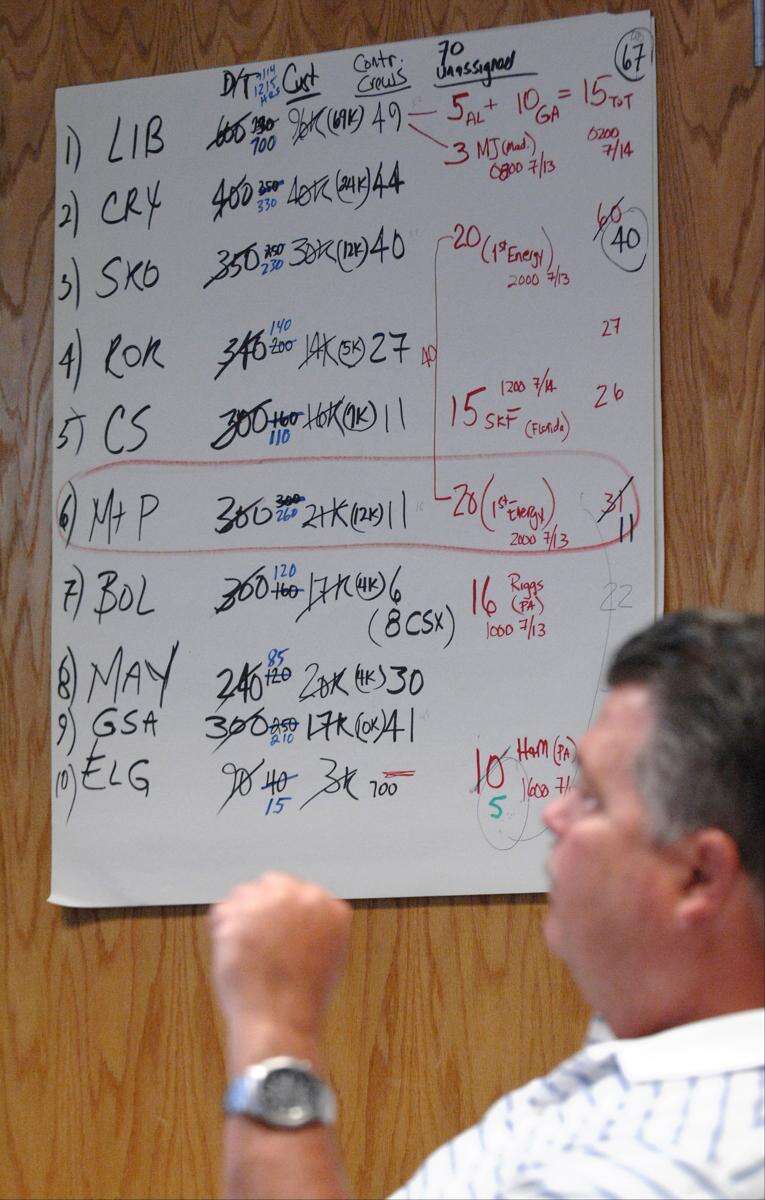 D/T 7/14 1215 Hrs Cust Contr. Crews 70 Unassigned 67
1) LIB 600 700 96K (69K) 49 5 AL + 10 GA = 15 TOT
3 MJ (Mad.) 0800 7/13 0200 7/14
2) CRY 400 350 330 40K (24K) 44
60 40
3) SKO 350 250 230 30K (12K) 40 20 (1st Energy) 2000 7/13
4) ROK 340 200 140 14K (5K) 27 40 27
5) CS 300 160 110 16K (9K) 11 15 SKF (Florida) 1200 7/14 26
6) M+P 300 300 260 21K (12K) 11 20 (1st Energy) 2000 7/13 31 11
7) BOL 300 160 120 17K (4K) 6 16 Riggs (PA) 1000 7/13 22
(8 CSX)
8) MAY 240 120 85 20K (4K) 30
9) GSA 300 250 210 17K (10K) 41
10) ELG 90 40 15 3K 700 10 5 H&M (PA) 1600 7/